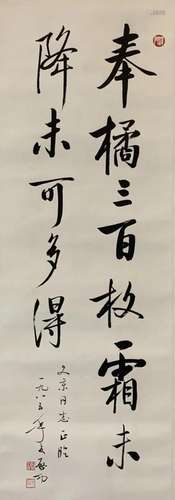 奉橘三百枚霜未
降未可多得
文京同志正腕
一九八五年夏启功